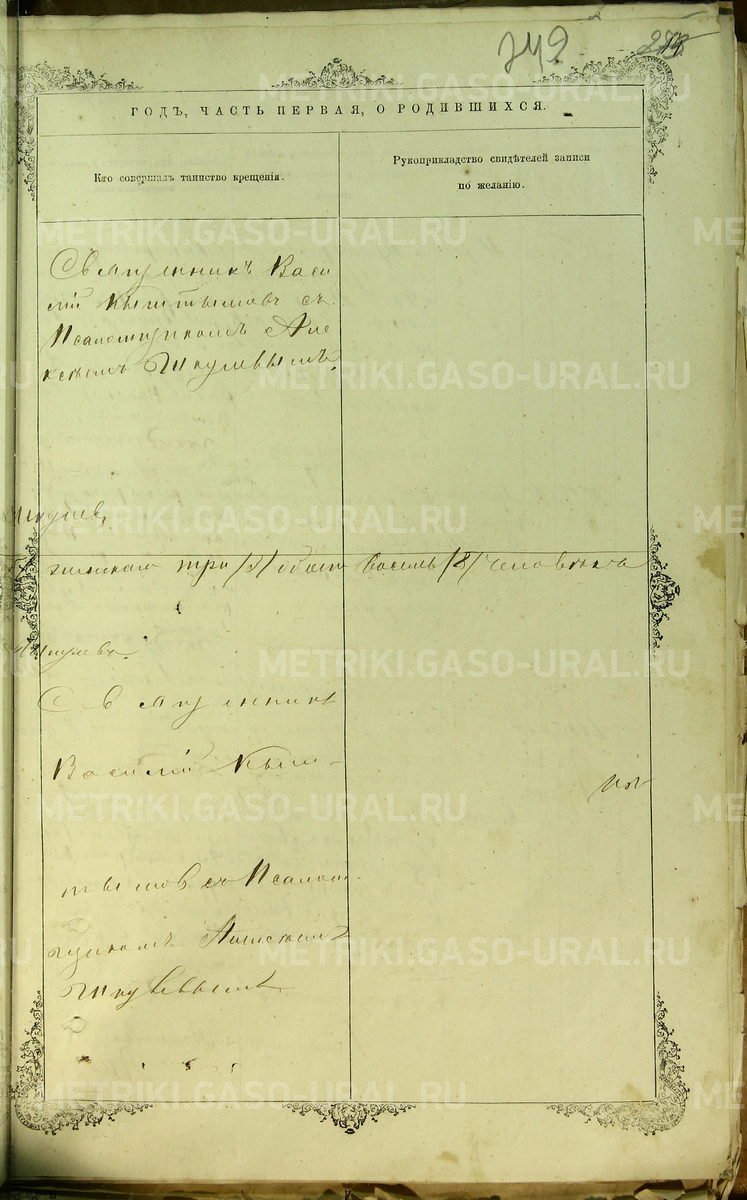 749.
ГОДЪ, ЧАСТЬ ПЕРВАЯ, О РОДИВШИХСЯ.
Кто совершалъ таинство крещенія.
Рукоприкладство свидѣтелей записи
по желанію.
Священникъ Васи
лій Кыштымовъ съ
Псаломщикомъ Але
ксѣемъ
три /3/ обоего восемь /8/ человѣкъ
Священникъ
Василій Кыш-
тымовъ съ Псалом
щикомъ Алексѣемъ
METRIKI.GASO-URAL.RU